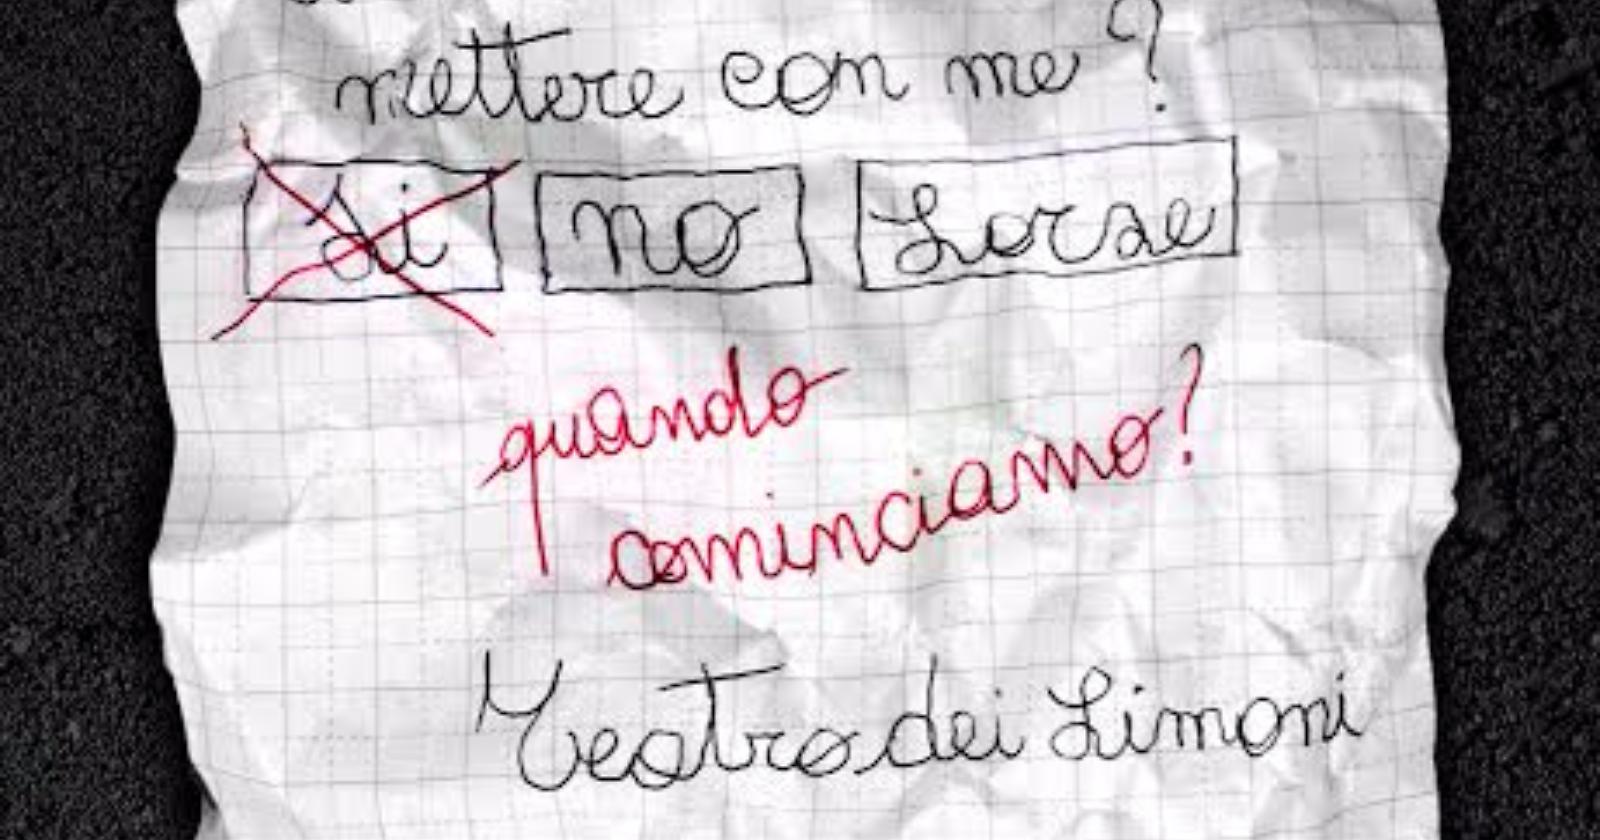 mettere con me?
si no Forse
quando
cominciamo?
Teatro dei Limoni